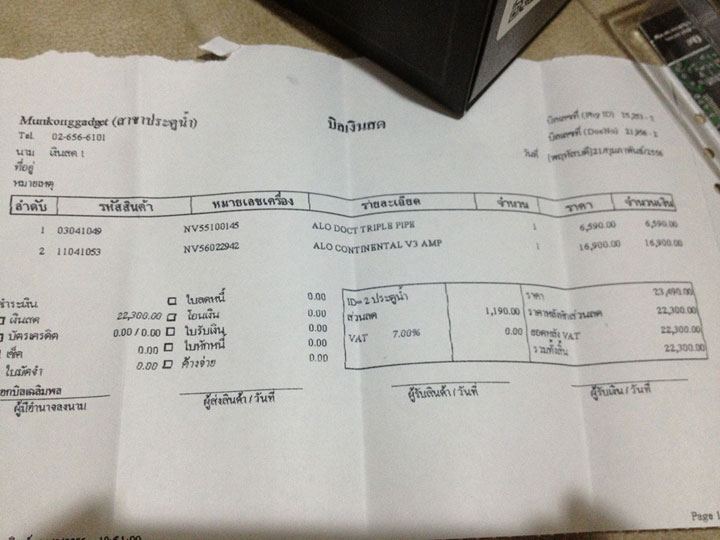 Munkonggadget (สาขาประตูน้ำ)
บิลเงินสด
บิลเลขที่ (Pay ID)
Tel. 02-656-6101
บิลเลขที่ (DocNo)
นาม เงินสด 1
วันที่ [พฤหัสบดี]21/กุมภาพันธ์/2556
ที่อยู่
หมายเหตุ
ลำดับ รหัสสินค้า หมายเลขเครื่อง รายละเอียด จำนวน ราคา จำนวนเงิน
1 03041049 NV55100145 ALO DOCT TRIPLE PIPE 1 6,590.00 6,590.00
2 11041053 NV56022942 ALO CONTINENTAL V3 AMP 1 16,900.00 16,900.00
ชำระเงิน ใบลดหนี้ 0.00 ID= 2 ประตูน้ำ ราคา 23,490.00
เงินสด 22,300.00 โอนเงิน 0.00 ส่วนลด 1,190.00 ราคาหลังหักส่วนลด 22,300.00
บัตรเครดิต 0.00 / 0.00 ใบรับเงิน 0.00 VAT 7.00% 0.00 ยอดหลัง VAT 22,300.00
เช็ค 0.00 ใบหักหนี้ 0.00 รวมทั้งสิ้น 22,300.00
ใบมัดจำ 0.00 ค้างจ่าย 0.00
ออกบิลเฉลิมพล
ผู้มีอำนาจลงนาม ผู้ส่งสินค้า / วันที่ ผู้รับสินค้า / วันที่ ผู้รับเงิน / วันที่
Page 1